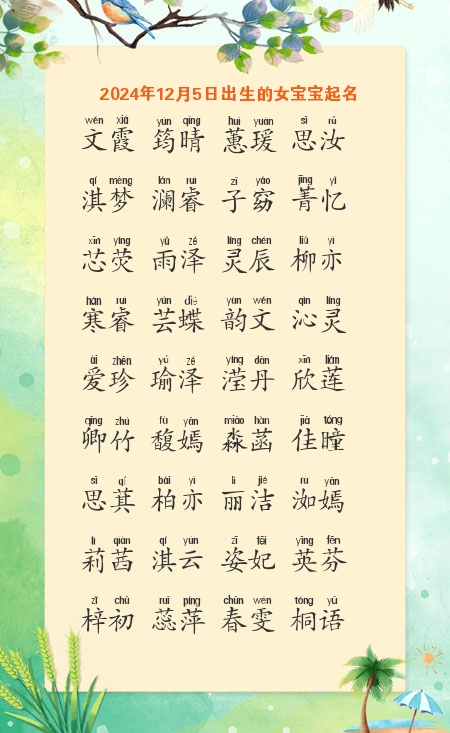 2024年12月5日出生的女宝宝起名
wén xiá yún qíng huì yuàn sī rǔ
文霞 筠晴 蕙瑗 思汝
qí mèng lán ruì zǐ yǎo jīng yì
淇梦 澜睿 子窈 菁忆
xīn yíng yǔ zé líng chén liǔ yì
芯荧 雨泽 灵辰 柳亦
hán ruì yún dié yùn wén qìn líng
寒睿 芸蝶 韵文 沁灵
ài zhēn yú zé yíng dān xīn lián
爱珍 瑜泽 滢丹 欣莲
qīng zhú fù yān miǎo hàn jiā tóng
卿竹 馥嫣 淼菡 佳曈
sī qí bǎi yì lì jié rù yān
思萁 柏亦 丽洁 洳嫣
lì qiàn qí yún zī fēi yīng fēn
莉茜 淇云 姿妃 英芬
zǐ chū ruǐ píng chūn wén tóng yǔ
梓初 蕊萍 春雯 桐语